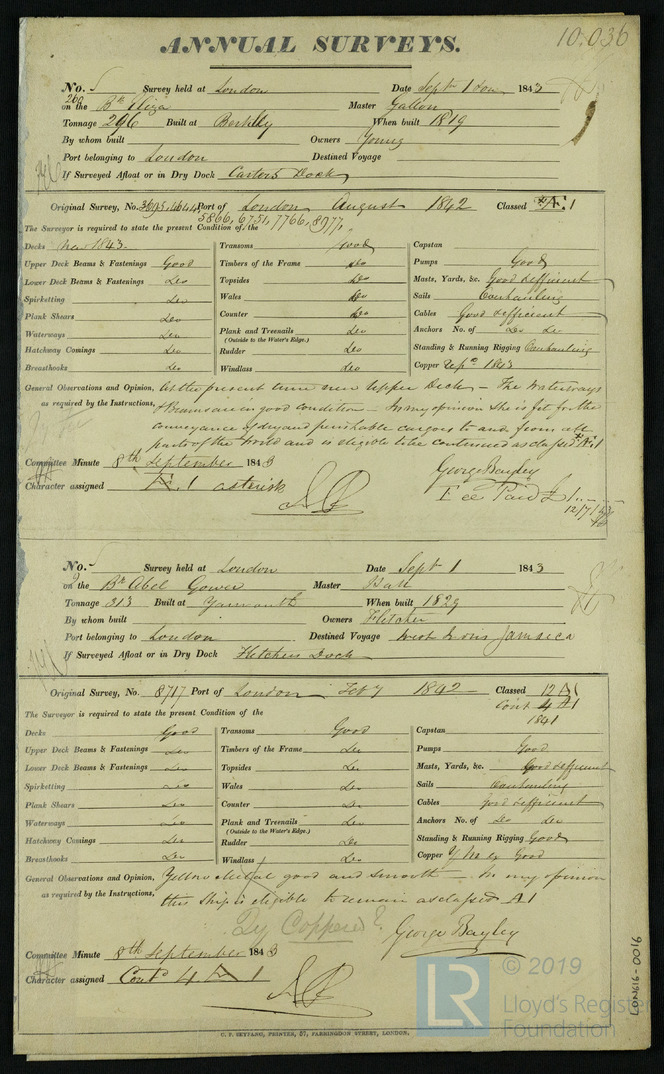 10,036
ANNUAL SURVEYS.
No. Survey held at London Date Sept 1 1843
on the Br Eliza Master Gallon
Tonnage 296 Built at Berkley When built 1819
By whom built Owners Young
Port belonging to London Destined Voyage
If Surveyed Afloat or in Dry Dock Dock
Original Survey, No. Port of London August 1842 Classed Æ 1
5866, 6751, 7766, 8977,
The Surveyor is required to state the present Condition of the
Decks New 1843 Transoms good Capstan
Upper Deck Beams & Fastenings Good Timbers of the Frame Do Pumps Good
Lower Deck Beams & Fastenings Do Topsides Do Masts, Yards, &c. Good & efficient
Spirketting Do Wales Do Sails Overhauling
Plank Shears Do Counter Do Cables Good & efficient
Waterways Do Plank and Treenails Do Anchors No. of Do Do
(Outside to the Water's Edge.)
Hatchway Comings Do Rudder Do Standing & Running Rigging Overhauling
Breasthooks Do Windlass Do Copper 1843
General Observations and Opinion, At the present time new upper Deck - The Waterways
as required by the Instructions, & Beams are in good condition - In my opinion She is fit for the
conveyance of dry and perishable cargoes to and from all
parts of the World and is eligible to be continued as classed Æ 1
Committee Minute 8th September 1843 George Bayley
Character assigned Æ. 1 asterisk Fee Paid £1
12/7/
No. Survey held at London Date Sept 1 1843
on the Br Abel Gower Master
Tonnage 313 Built at Yarmouth When built 1829
By whom built Owners Fletcher
Port belonging to London Destined Voyage Jamaica
If Surveyed Afloat or in Dry Dock Fletchers Dock
Original Survey, No. 8717 Port of London Feb 7 1842 Classed 12 A1
Cont 4 A1
1841
The Surveyor is required to state the present Condition of the
Decks Good Transoms Good Capstan
Upper Deck Beams & Fastenings Do Timbers of the Frame Do Pumps Good
Lower Deck Beams & Fastenings Do Topsides Do Masts, Yards, &c. Good & efficient
Spirketting Do Wales Do Sails Overhauling
Plank Shears Do Counter Do Cables good & efficient
Waterways Do Plank and Treenails Do Anchors No. of Do Do
(Outside to the Water's Edge.)
Hatchway Comings Do Rudder Do Standing & Running Rigging Good
Breasthooks Do Windlass Do Copper Good
General Observations and Opinion, Yellow Metal good and smooth - In my opinion
as required by the Instructions, this ship is eligible to remain as classed A1
Qy Coppered? George Bayley
Committee Minute 8th September 1843
Character assigned Contd 4 A 1
LON616-0016
LR © 2019
Lloyd's Register
Foundation
C. F. SEYFANG, PRINTER, 57, FARRINGDON STREET, LONDON.